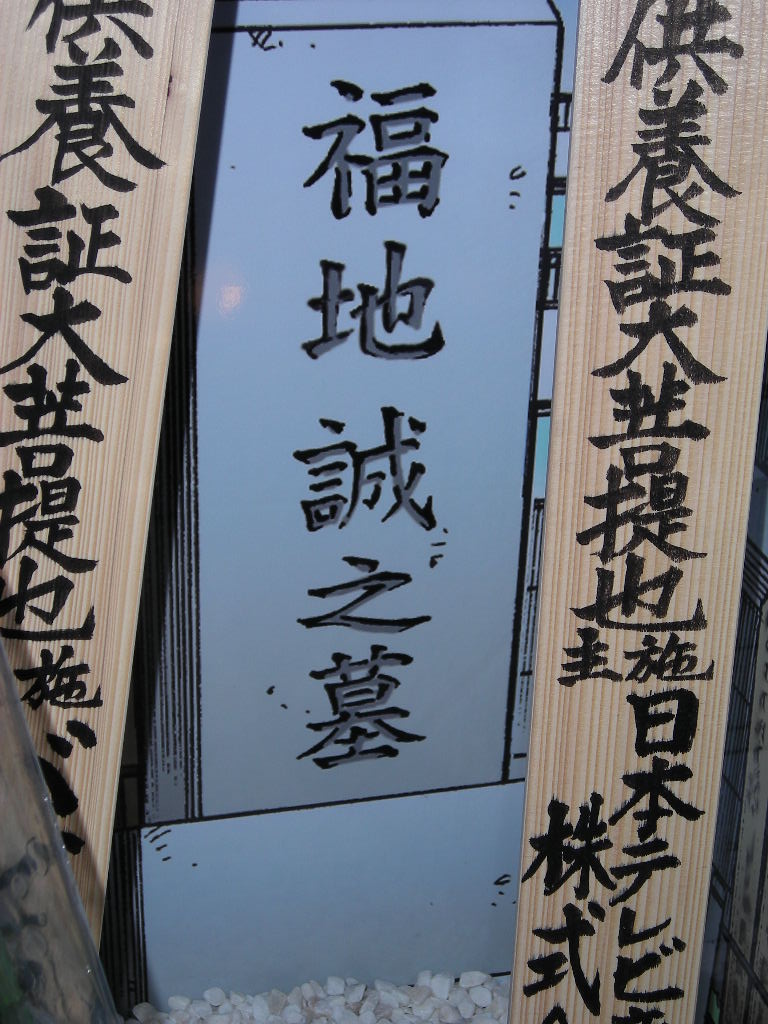 供養証大菩提也施主日本テレビ
株式
福地誠之墓
供養証大菩提也施